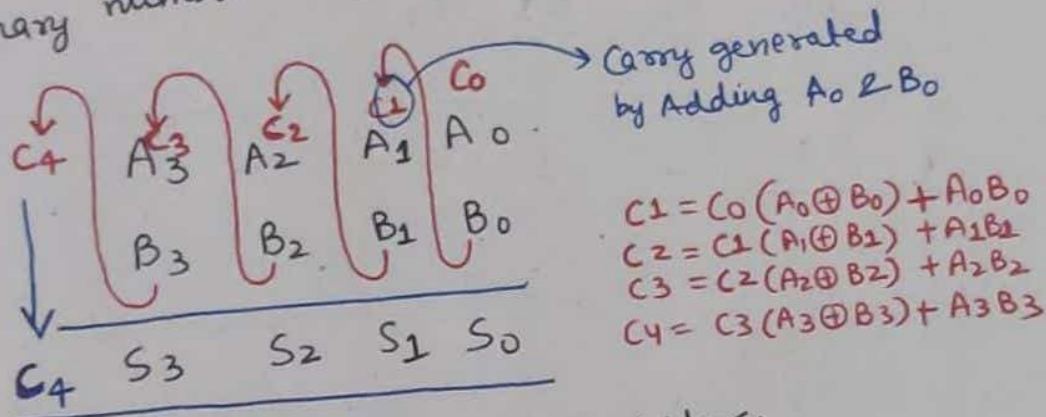 C0
Carry generated
by Adding A0 & B0
C4 C3 C2 C1
A3 A2 A1 A0
B3 B2 B1 B0
C4 S3 S2 S1 S0
C1 = C0 (A0 ⊕ B0) + A0B0
C2 = C1 (A1 ⊕ B1) + A1B1
C3 = C2 (A2 ⊕ B2) + A2B2
C4 = C3 (A3 ⊕ B3) + A3B3